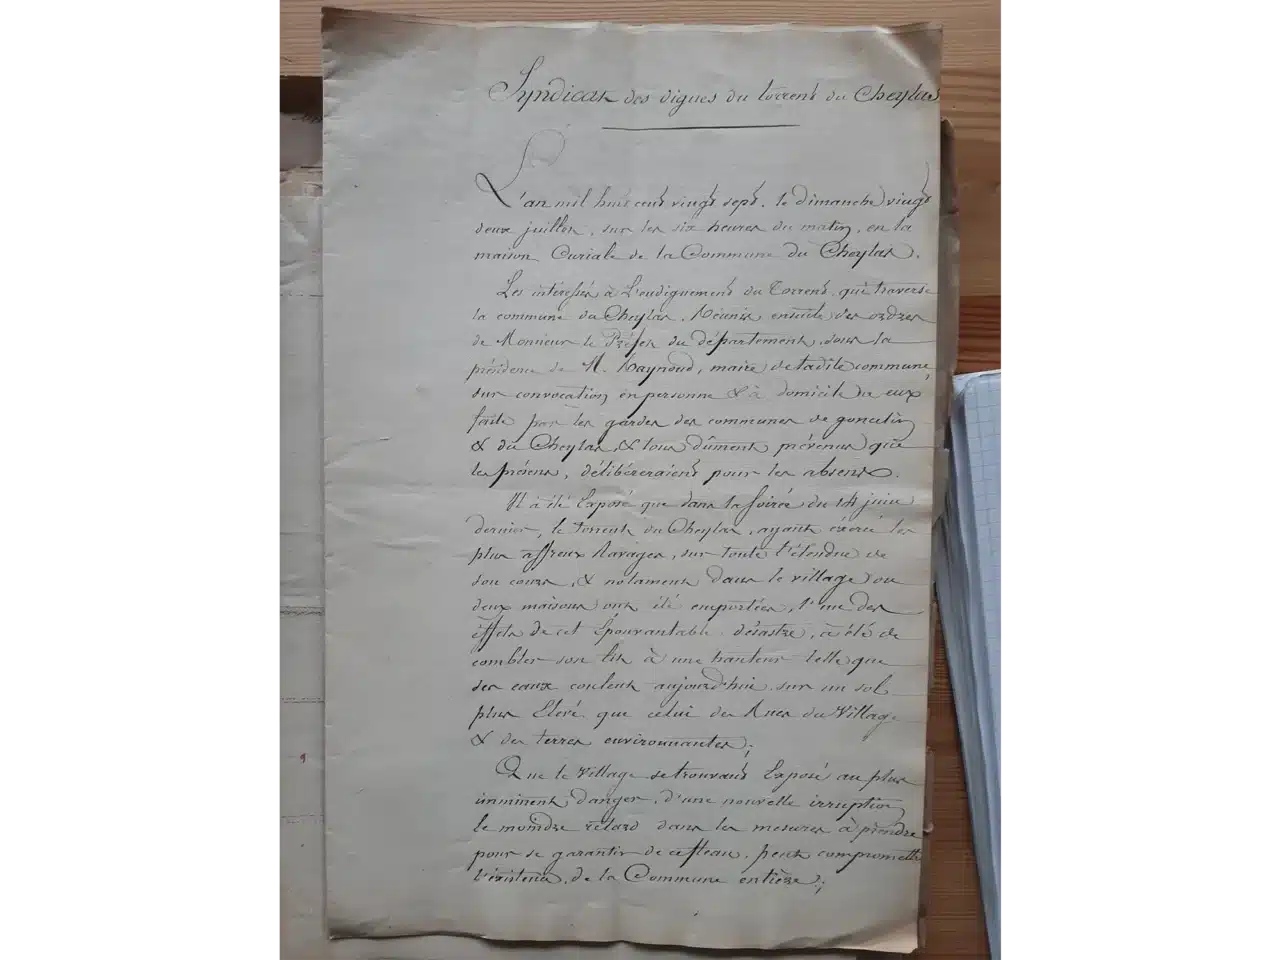 Syndicat des digues du torrent du Cheylas
L'an mil huit cent vingt sept, le dimanche vingt
deux juillet, sur les six heures du matin, en la
maison Curiale de la Commune du Cheylas.
Les intéressés à L'endiguement du Torrent qui traverse
la commune du Cheylas, Réunis ensuite des ordres
de Monsieur le Préfet du département, sous la
présidence de M. Raynoud, maire de ladite commune,
sur convocation en personne & à domicile de eux
faite par les gardes des communes de goncelin
& du Cheylas, & tous dûment prévenus que
les présens, délibéreraient pour les absens.
Il a été Exposé que dans la soirée du 14 juin
dernier, le torrent du Cheylas, ayant exercé les
plus affreux Ravages, sur toute l'étendue de
son cours, & notament dans le village ou
deux maisons ont été emportées, l'un des
effets de cet Epouvantable désastre, a été de
combler son lit à une hauteur telle que
ses eaux coulent aujourd'hui sur un sol
plus Elevé que celui des Rues du Village
& des terres environnantes;
Que le Village se trouvant Exposé au plus
imminent danger, d'une nouvelle irruption
le moindre rétard dans les mesures à prendre
pour se garantir de ce fléau, peut compromettre
l'éxistence de la Commune entière;